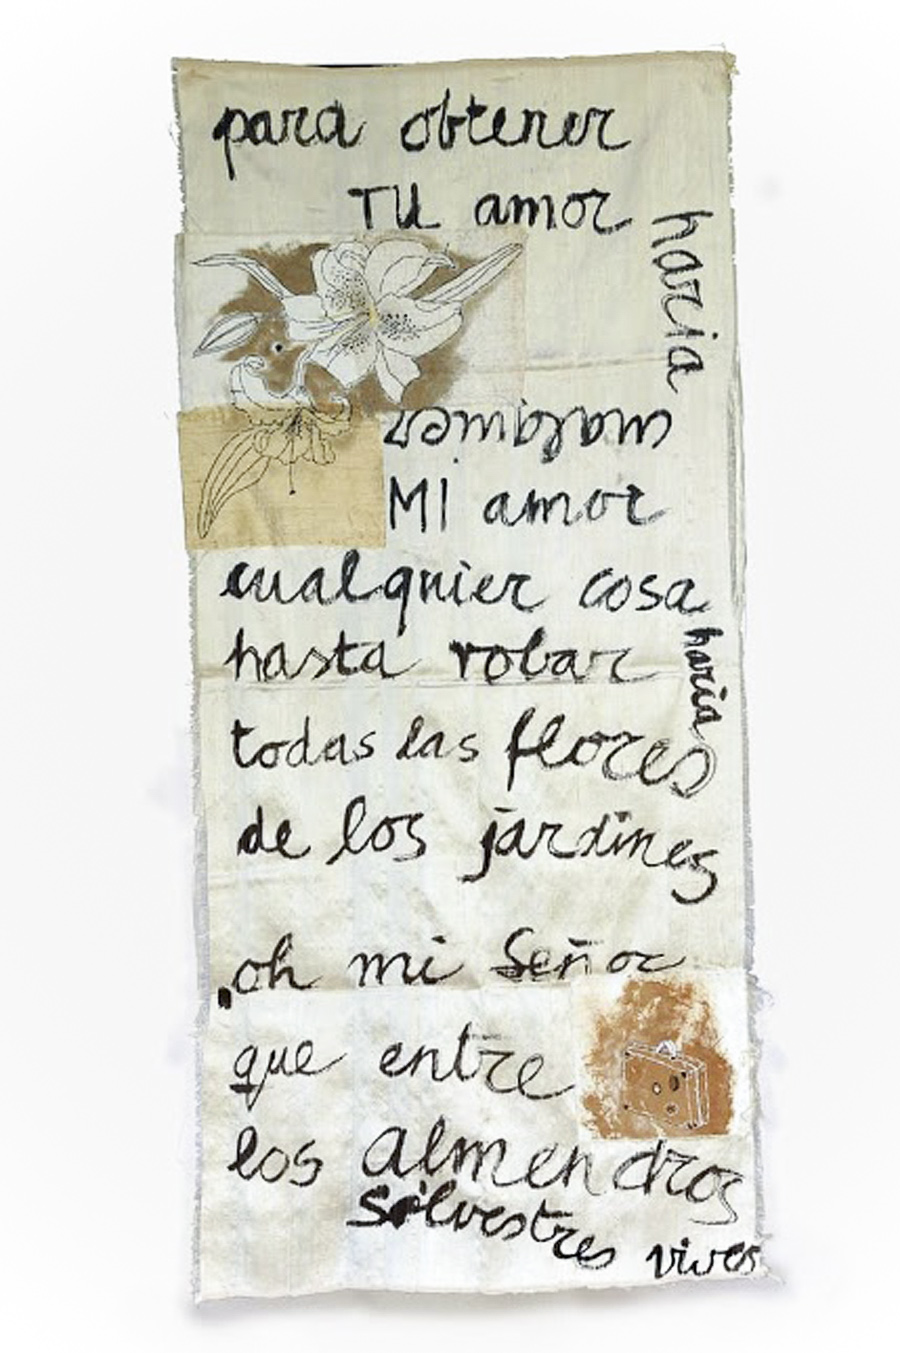 para obtener
TU amor
haria
MI amor
cualquier cosa
haria
hasta robar
todas las flores
de los jardines
oh mi Señor
que entre
los almendros
Silvestres vives